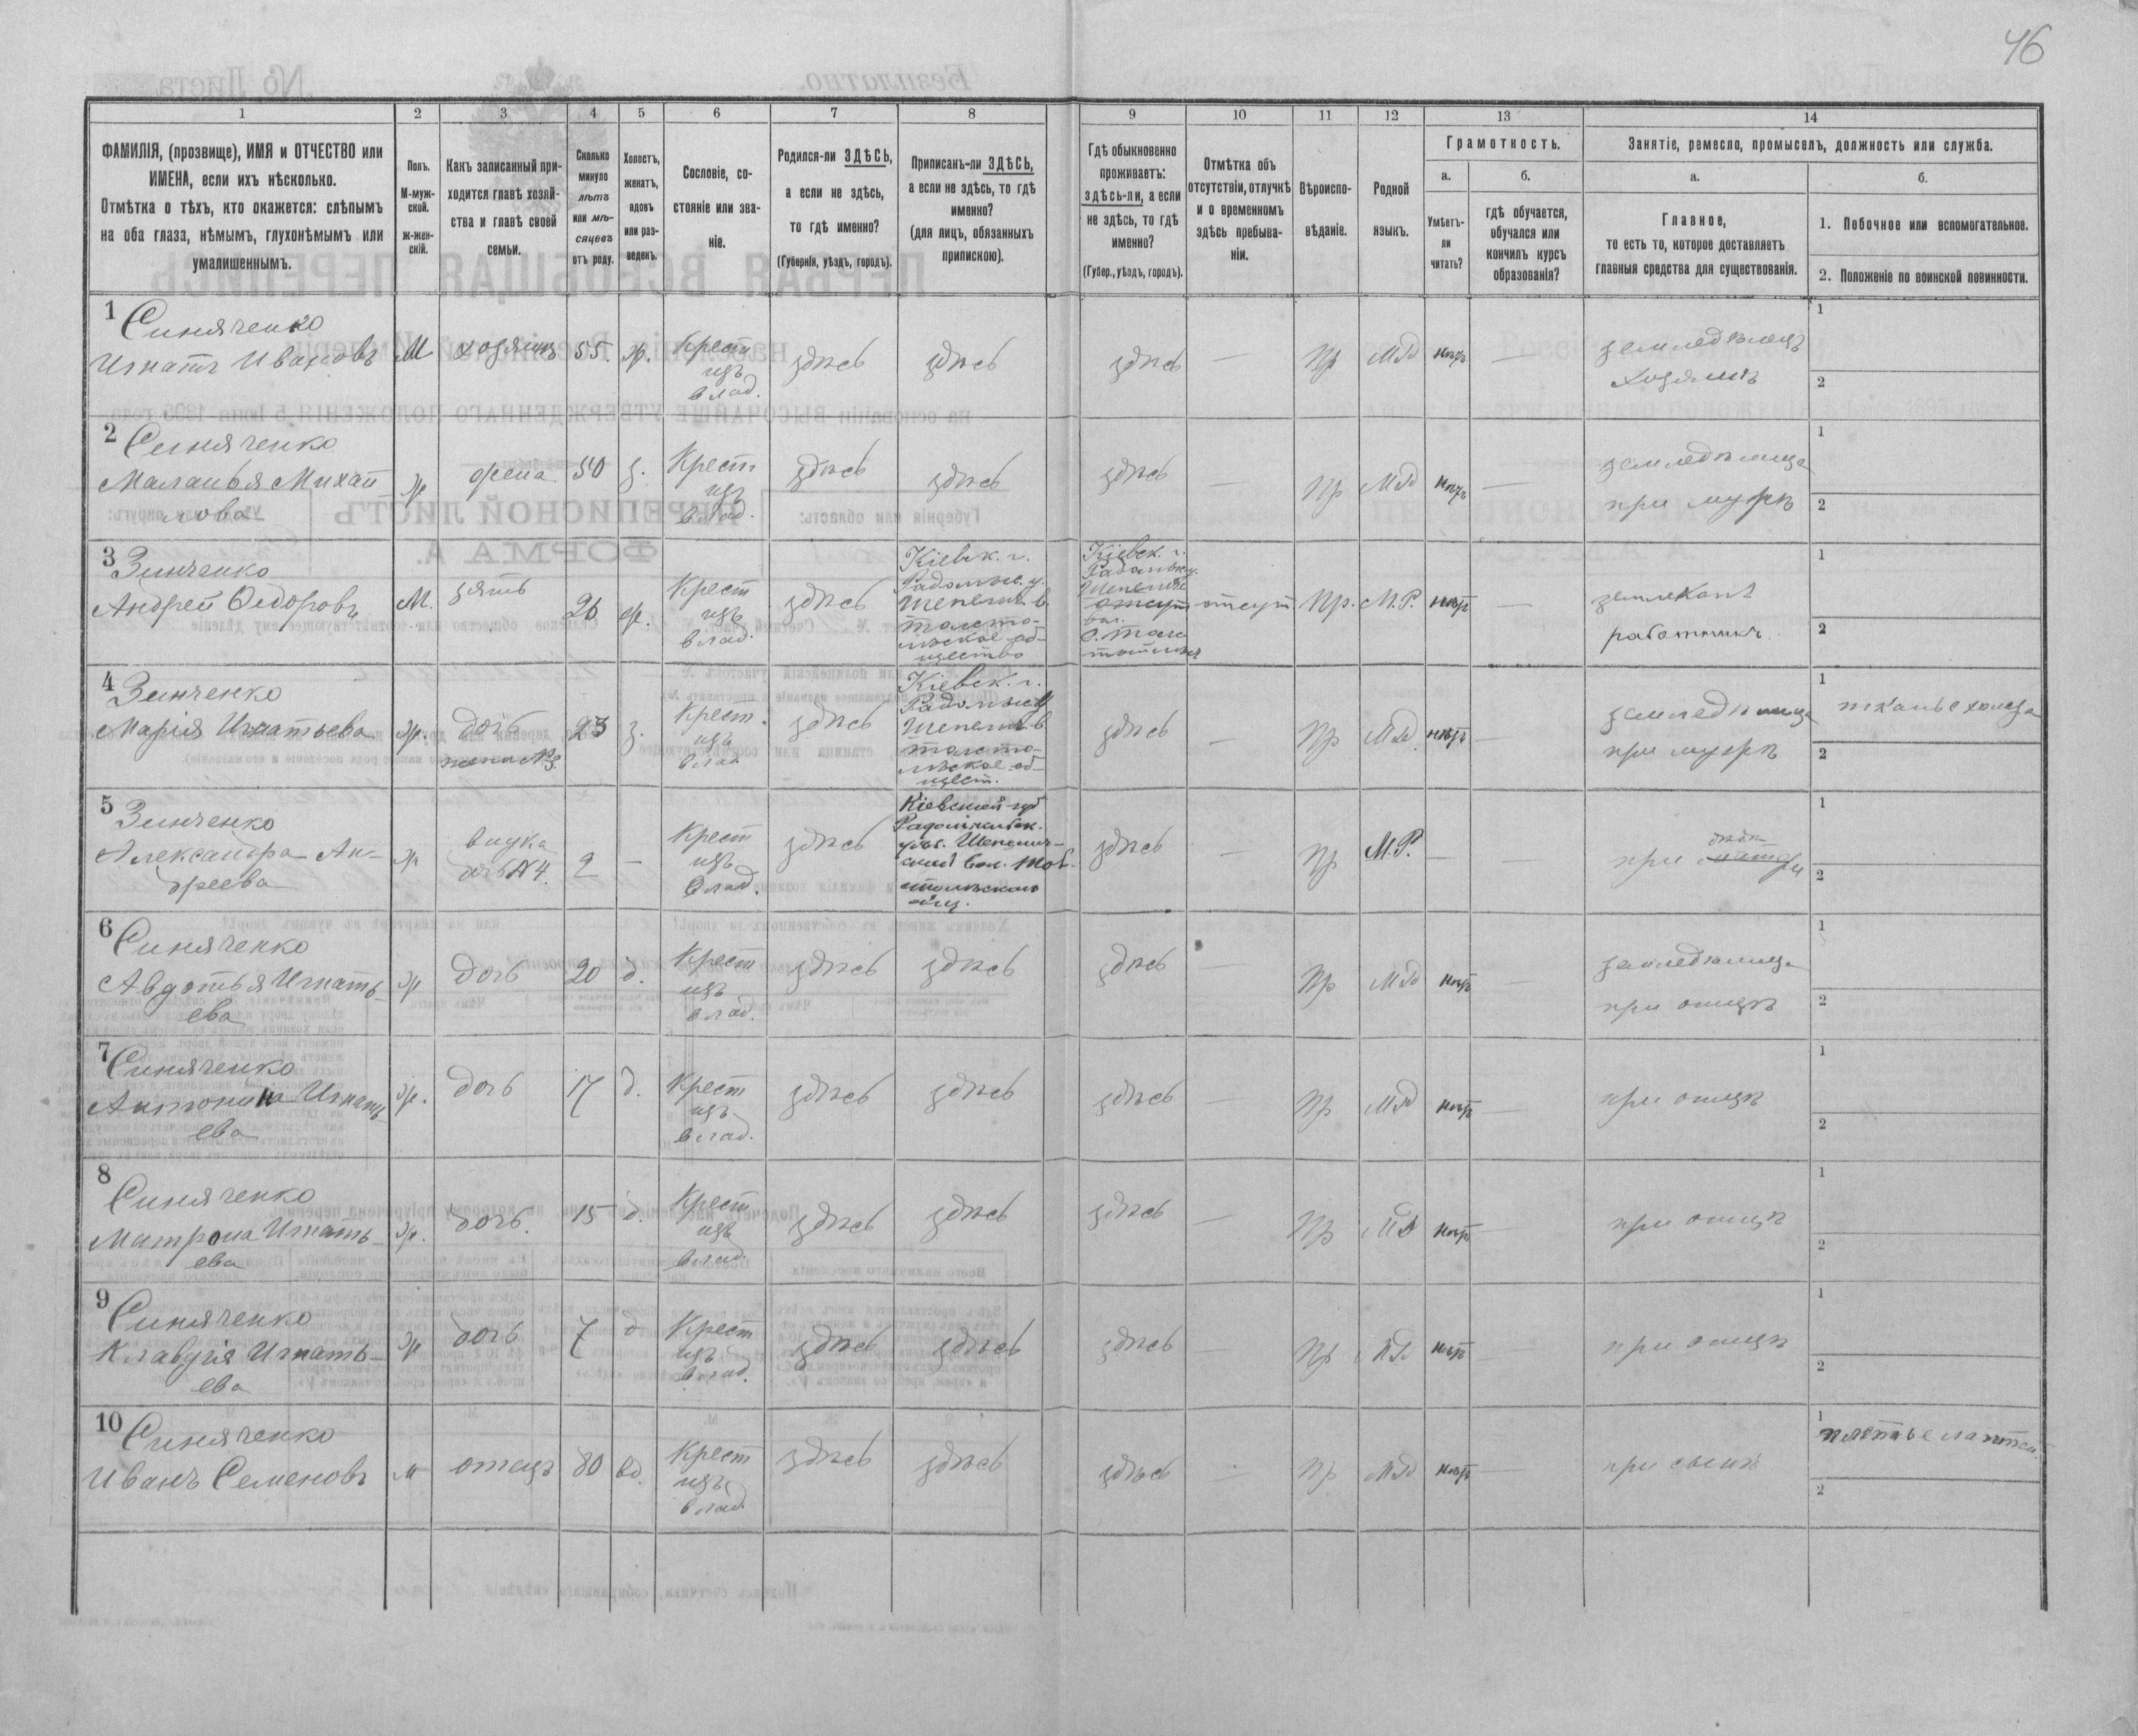 46
1 2 3 4 5 6 7 8 9 10 11 12 13 14
ФАМИЛІЯ, (прозвище), ИМЯ и ОТЧЕСТВО или
ИМЕНА, если ихъ нѣсколько.
Отмѣтка о тѣхъ, кто окажется: слѣпымъ
на оба глаза, нѣмымъ, глухонѣмымъ или
умалишеннымъ.
Полъ.
М-муж-
ской.
ж-жен-
скій.
Какъ записанный при-
ходится главѣ хозяй-
ства и главѣ своей
семьи.
Сколько
минуло
лѣтъ
или мѣ-
сяцевъ
отъ роду.
Холостъ,
женатъ,
вдовъ
или раз-
веденъ.
Сословіе, со-
стояніе или зва-
ніе.
Родился-ли ЗДѢСЬ,
а если не здѣсь,
то гдѣ именно?
(Губернія, уѣздъ, городъ).
Приписанъ-ли ЗДѢСЬ,
а если не здѣсь, то гдѣ
именно?
(для лицъ, обязанныхъ
припискою).
Гдѣ обыкновенно
проживаетъ:
здѣсь-ли, а если
не здѣсь, то гдѣ
именно?
(Губер., уѣздъ, городъ).
Отмѣтка объ
отсутствіи, отлучкѣ
и о временномъ
здѣсь пребыва-
ніи.
Вѣроиспо-
вѣданіе.
Родной
языкъ.
Грамотность.
а.
Умѣетъ-
ли
читать?
б.
гдѣ обучается,
обучался или
кончилъ курсъ
образованія?
Занятіе, ремесло, промыселъ, должность или служба.
а.
Главное,
то есть то, которое доставляетъ
главныя средства для существованія.
б.
1. Побочное или вспомогательное.
2. Положеніе по воинской повинности.
1 Синяченко
Игнатъ Ивановъ М хозяинъ 55. ж. Крест здѣсь здѣсь здѣсь — Пр МР нѣтъ — земледѣлецъ 1
изъ хозяинъ 2
влад.
2 Синяченко
Маланья Михай- ж жена 50 з. Крест здѣсь здѣсь здѣсь — Пр МР нѣтъ — земледѣлица 1
лова изъ при мужѣ 2
влад.
3 Зинченко
Андрей Ѳедоровъ М. зять 26 ж. Крест здѣсь
изъ
влад.
Кіевск. г.
Радомыс. у.
Шепелич. в.
толсто-
лѣское об-
щество
Кіевск. г.
отсут Пр. М.Р. нѣтъ — землекопъ 1
работникъ. 2
4 Зинченко
Марія Игнатьева ж. дочь 23 з. Крест. здѣсь
жена №3. изъ
влад
Кіевск. г.
Радомыс у
Шепелич. в
толсто-
лѣское об-
щест.
здѣсь — Пр МР нѣтъ — земледѣлица 1 тканье холста
при мужѣ 2
5 Зинченко
Александра Ан- ж внука 2 — Крест здѣсь
дреева дочь №4. изъ
влад.
Кіевской губ
здѣсь — Пр М.Р. — — при 1
2
6 Синяченко
Авдотья Игнать- ж дочь 20 д. Крест здѣсь здѣсь здѣсь — Пр МР нѣтъ — земледѣлица 1
ева изъ при отцѣ 2
влад.
7 Синяченко
Антонина Игнать- ж. дочь 17 д. Крест здѣсь здѣсь здѣсь — Пр МР нѣтъ — при отцѣ 1
ева изъ 2
влад.
8 Синяченко
Матрона Игнать- ж. дочь. 15 д. Крест здѣсь здѣсь здѣсь — Пр МР нѣтъ при отцѣ 1
ева изъ 2
влад.
9 Синяченко
Клавдія Игнать- ж дочь 7 д Крест здѣсь здѣсь здѣсь — Пр МР нѣтъ при отцѣ 1
ева изъ 2
влад.
10 Синяченко
Иванъ Семеновъ м отецъ 80 вд. Крест здѣсь здѣсь здѣсь — Пр МР нѣтъ — при сынѣ 1 плетенье лаптей.
изъ 2
влад.